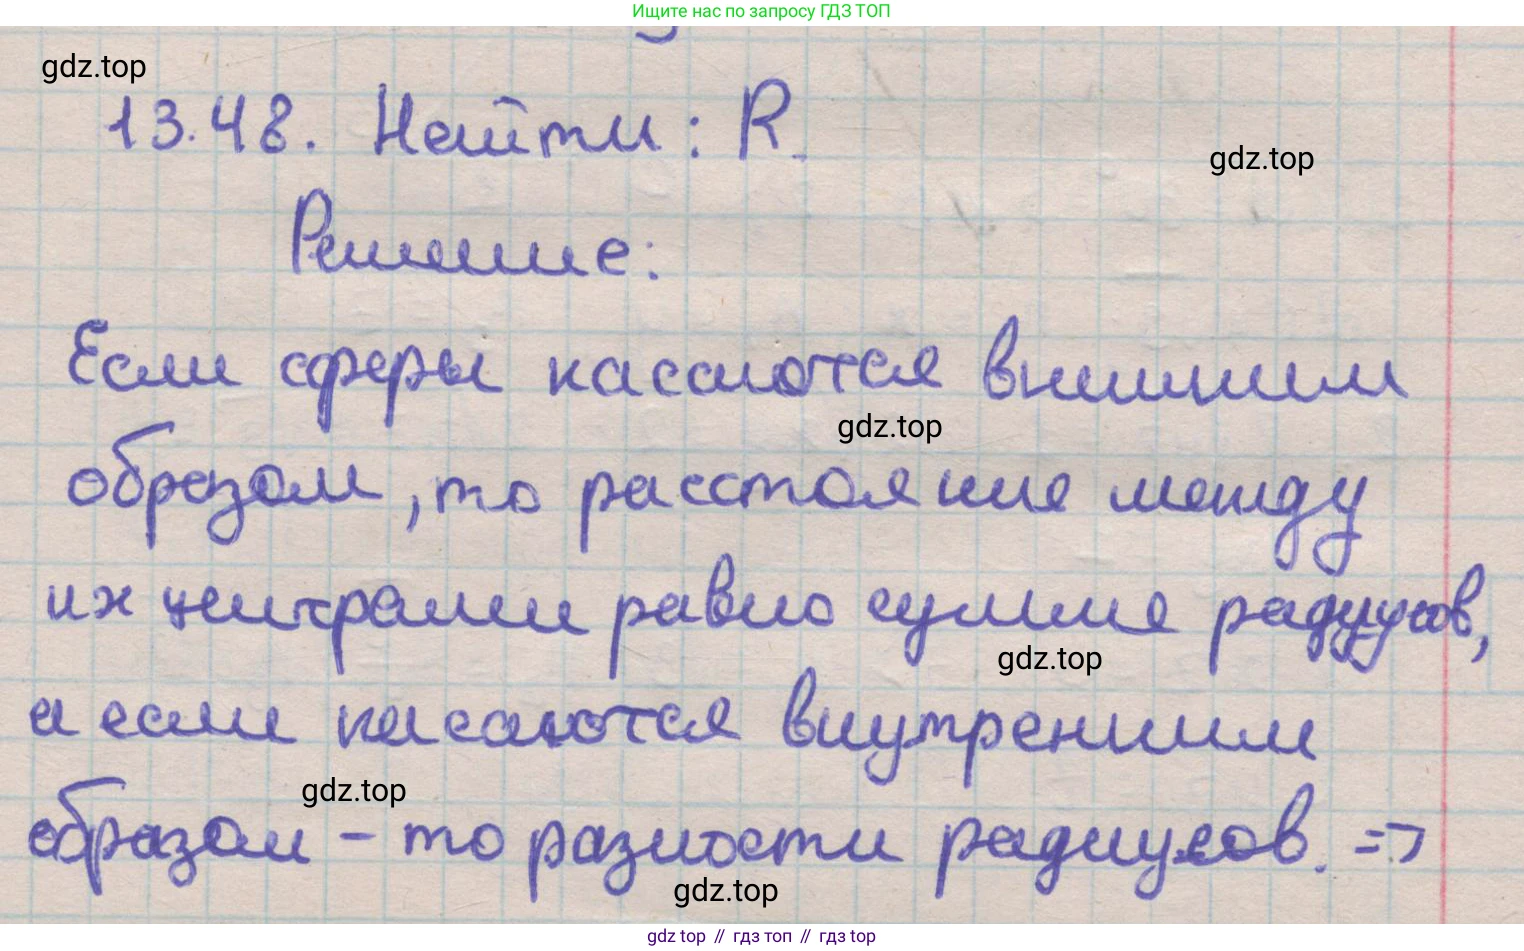 Ищите нас по запросу ГДЗ ТОП
gdz.top
13.48. Найти: R.
gdz.top
Решение:
Если сферы касаются внешним
gdz.top
образом, то расстояние между
их центрами равно сумме радиусов,
gdz.top
а если касаются внутренним
gdz.top
образом – то разности радиусов. =>
gdz.top
gdz top // гдз топ // гдз top